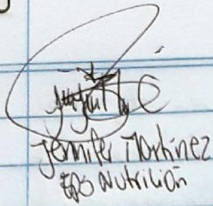 Jennifer Martinez
EPS Nutrición